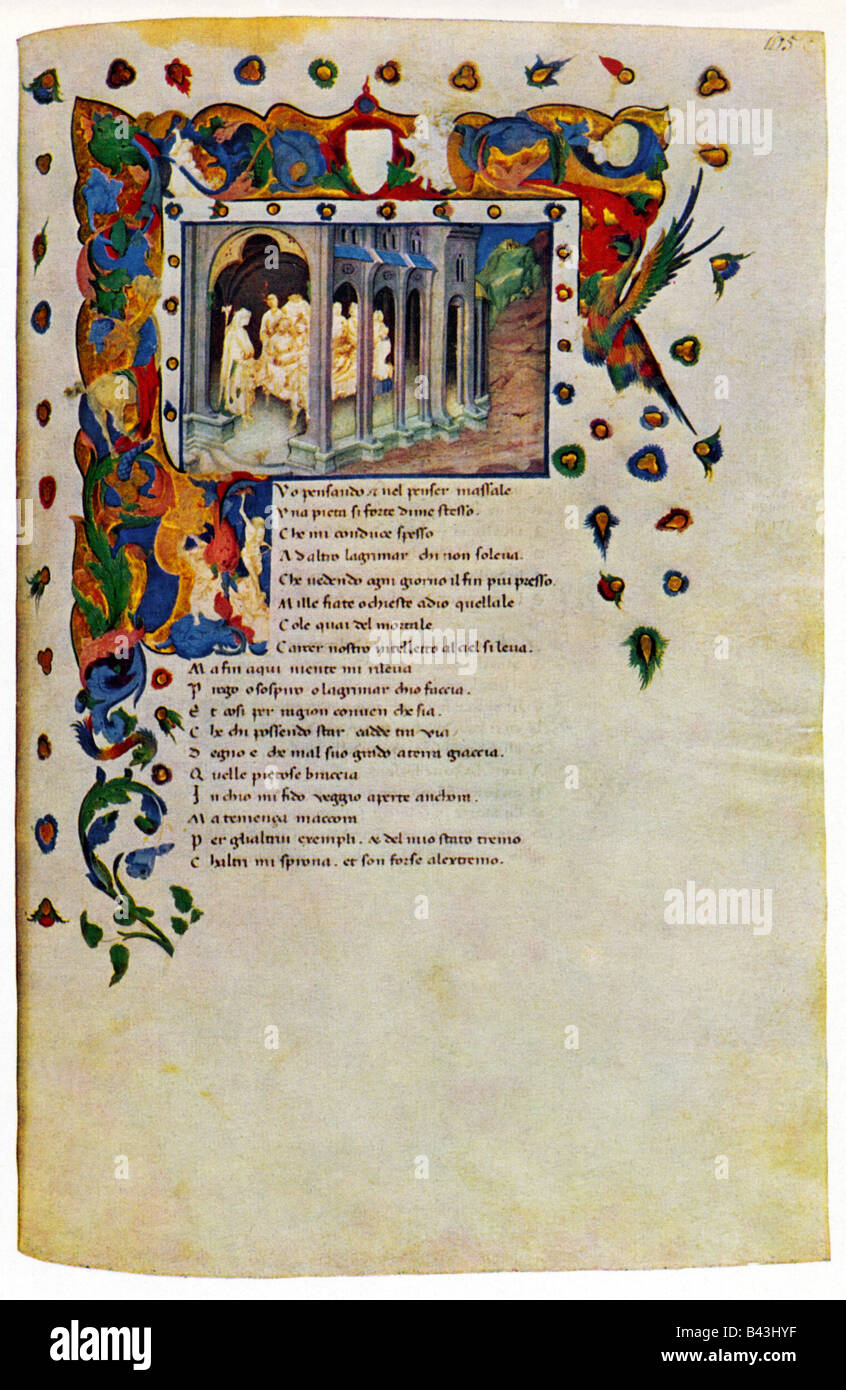 105
Vo pensando & nel penser massale
Vna pieta si forte dime stesso.
Che mi conduce spesso
Ad altro lagrimar chi non soleua.
Che uedendo ogni giorno il fin piu presso.
Mille fiate o chieste adio quellale
Cole quai del mortale
Carcer nostro intelletto al ciel si leua.
Ma fin aqui niente mi rileua
Prego o sospiro o lagrimar chio faccia.
Et cosi per ragion conuen che sia.
Che chi possendo star cadde tra uia
Degno e che mal suo grado a terra giaccia.
Quelle pietose braccia
In chio mi fido veggio aperte anchora.
Ma temença maccora
Per glialtrui exempli. & del mio stato tremo
Chaltri mi sprona. et son forse alextremo.
alamy
alamy
Image ID: B43HYF
www.alamy.com